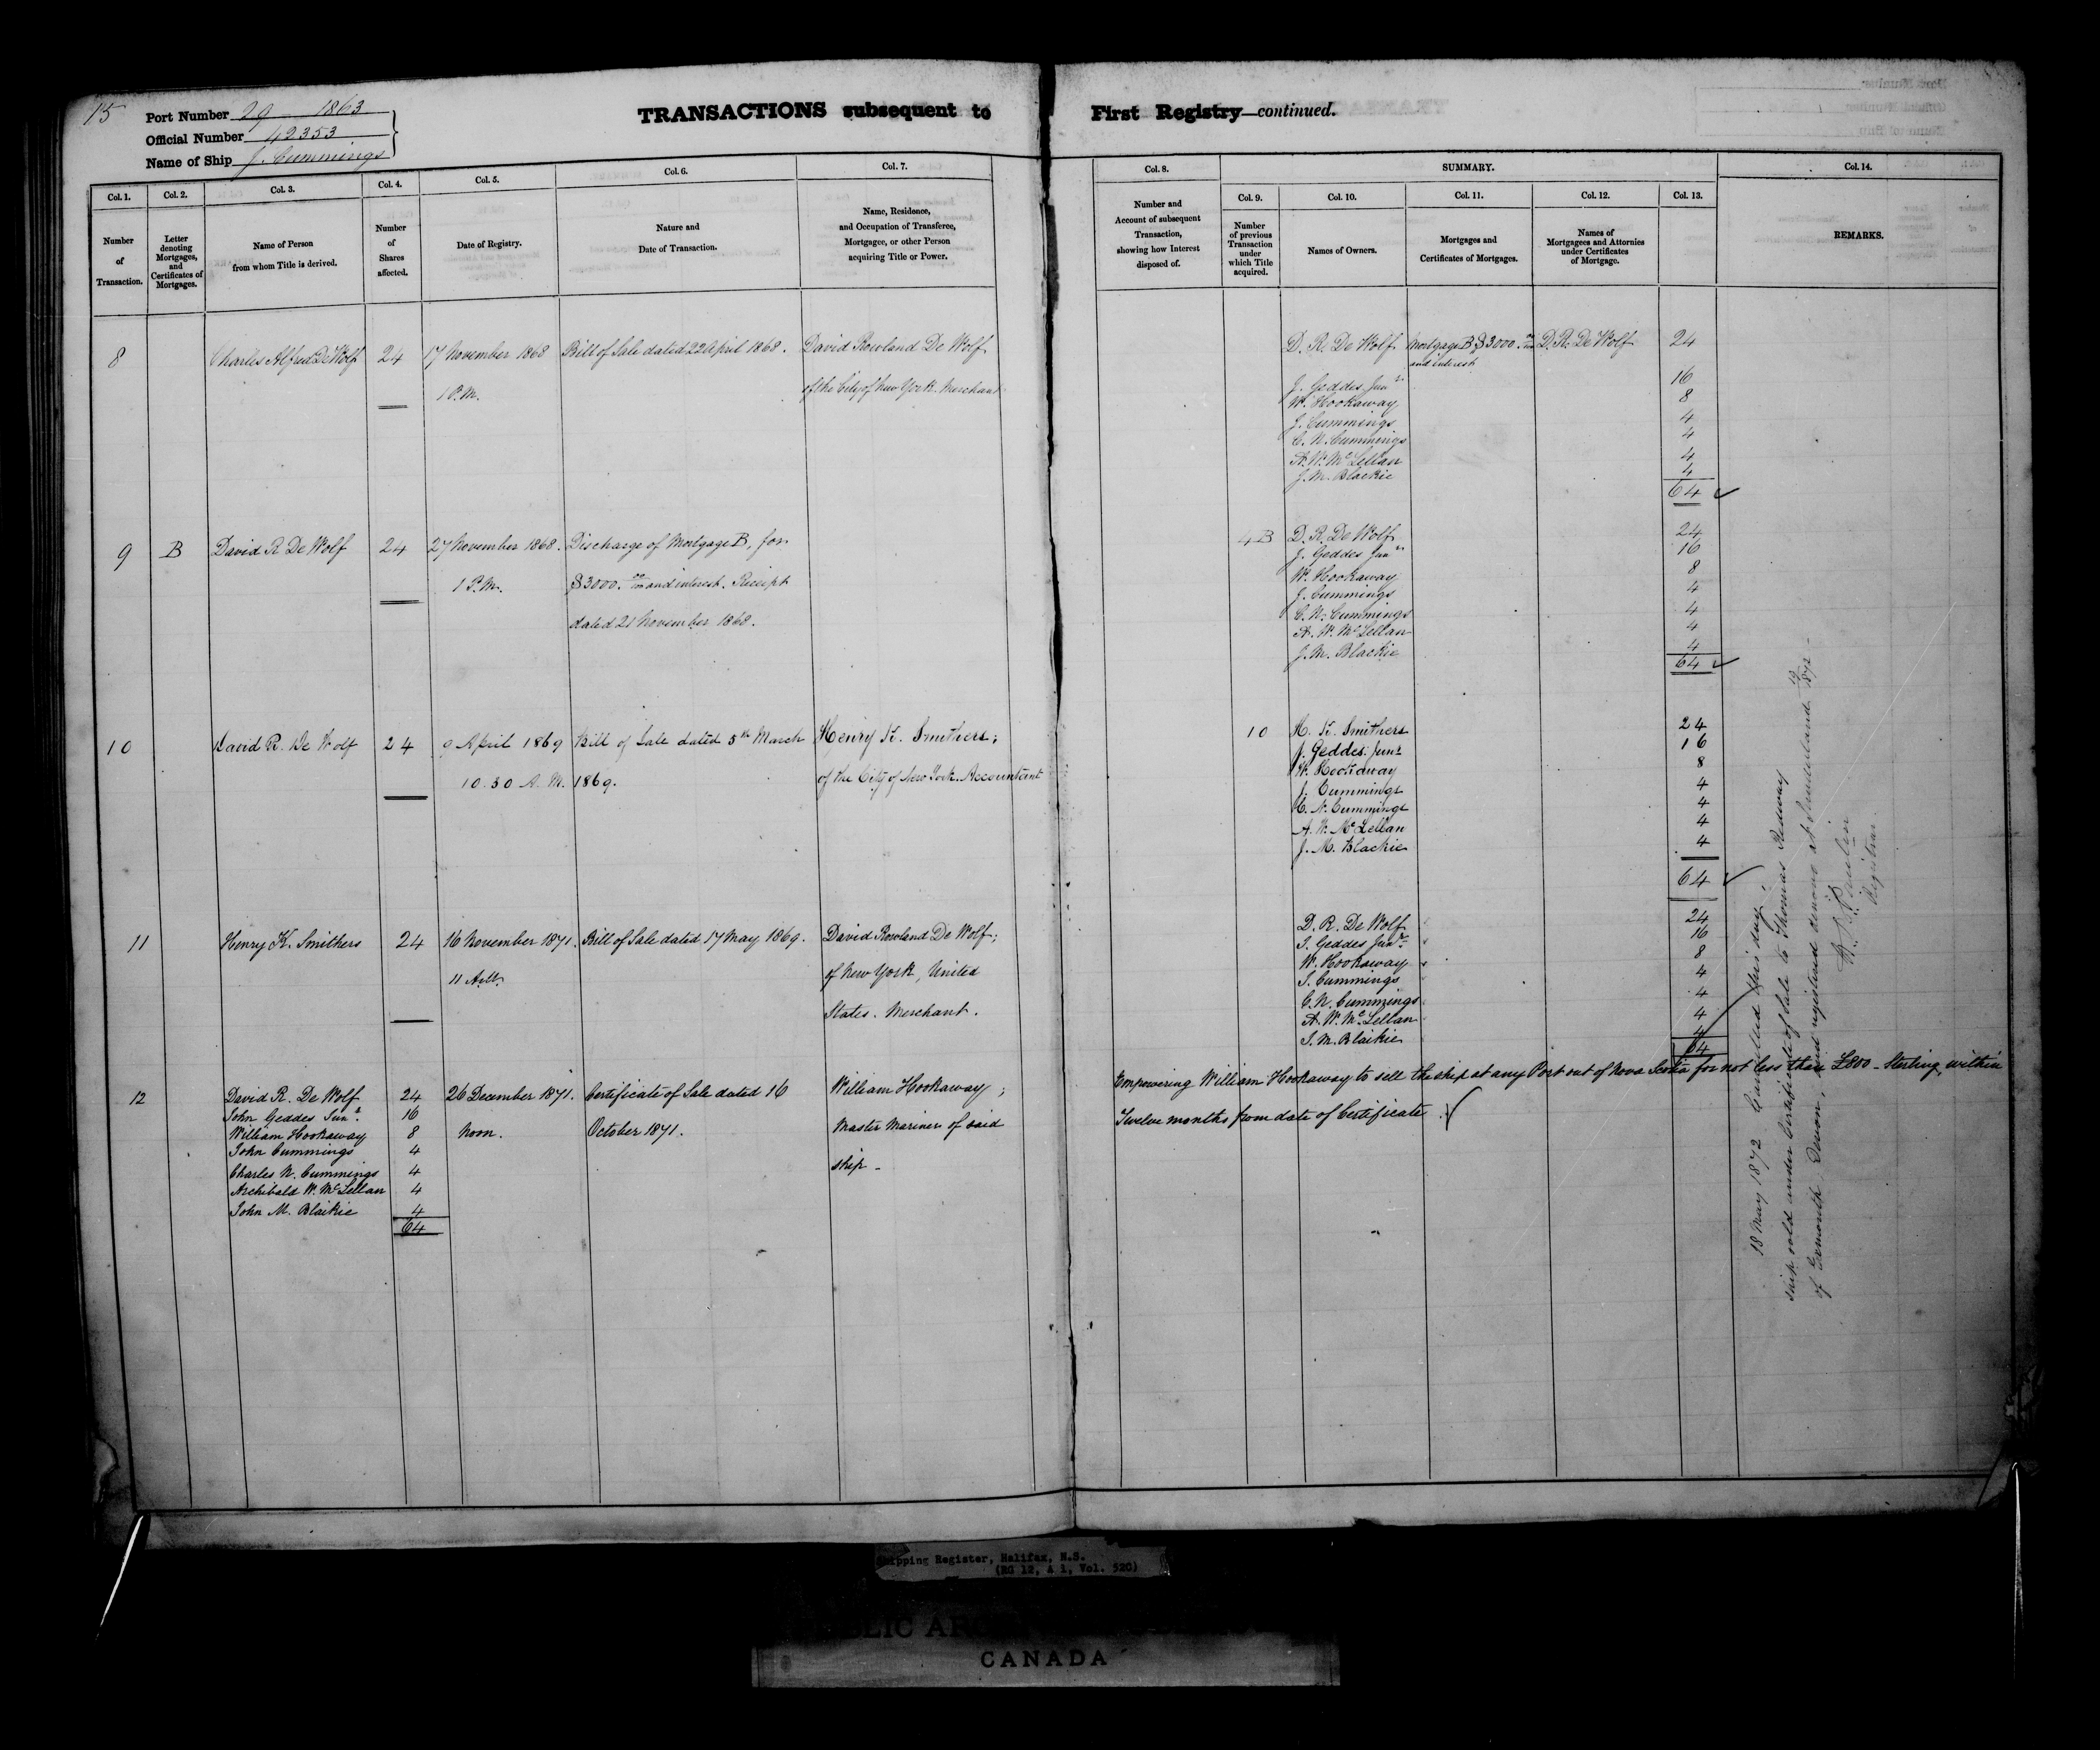 15
Port Number 29 1863
Official Number 42353
Name of Ship J. Cummings
TRANSACTIONS subsequent to First Registry—continued.
Col. 1.
Number of Transaction.
Col. 2.
Letter denoting Mortgages, and Certificates of Mortgages.
Col. 3.
Name of Person from whom Title is derived.
Col. 4.
Number of Shares affected.
Col. 5.
Date of Registry.
Col. 6.
Nature and Date of Transaction.
Col. 7.
Name, Residence, and Occupation of Transferee, Mortgagee, or other Person acquiring Title or Power.
Col. 8.
Number and Account of subsequent Transaction, showing how Interest disposed of.
SUMMARY.
Col. 9.
Number of previous Transaction under which Title acquired.
Col. 10.
Names of Owners.
Col. 11.
Mortgages and Certificates of Mortgages.
Col. 12.
Names of Mortgagees and Attornies under Certificates of Mortgage.
Col. 13.
Col. 14.
REMARKS.
8 Charles Alfred De Wolf 24 17 November 1868 Bill of Sale dated 22 April 1868. David Rowland De Wolf
1 P.M. of the City of New York. Merchant
D. R. De Wolf Mortgage B $3000. 00/100 D. R. De Wolf 24
and interest
J. Geddes Junr 16
W. Hookaway 8
J. Cummings 4
C. N. Cummings 4
A. W. McLellan 4
J. M. Blackie 4
64 ✓
9 B David R De Wolf 24 27 November 1868. Discharge of Mortgage B, for
1 P.M. $3000. 00/100 and interest. Receipt
dated 21 November 1868.
4B D. R. De Wolf 24
J. Geddes Junr 16
W. Hookaway 8
J. Cummings 4
C. N. Cummings 4
A. W. McLellan 4
J. M. Blackie 4
64 ✓
10 David R. De Wolf 24 9 April 1869 Bill of Sale dated 5th March Henry K. Smithers;
10.30 A.M. 1869. of the City of New York. Accountant
10 H. K. Smithers 24
J. Geddes Junr 16
W. Hookaway 8
J. Cummings 4
C. N. Cummings 4
A. W. McLellan 4
J. M. Blackie 4
64 ✓
11 Henry K. Smithers 24 16 November 1871. Bill of Sale dated 17 May 1869. David Rowland De Wolf;
11 A.M. of New York, United
States. Merchant.
D. R. De Wolf 24
J. Geddes Junr 16
W. Hookaway 8
J. Cummings 4
C. N. Cummings 4
A. W. McLellan 4
J. M. Blaikie 4
64
12 David R. De Wolf 24 26 December 1871. Certificate of Sale dated 16 William Hookaway;
John Geddes Junr. 16
William Hookaway 8 Noon. October 1871. Master Mariner of said
John Cummings 4
Charles N. Cummings 4 ship -
Archibald W. McLellan 4
John M. Blaikie 4
64
Empowering William Hookaway to sell the ship at any Port out of Nova Scotia for not less than £800 - Sterling, within
Twelve months from date of Certificate.
18 May 1872 Cancelled this day,
ship sold under Certificate of Sale to Thomas Redway
of Exmouth, Devon, and registered anew at Sunderland 1872 -
Registrar
Shipping Register, Halifax, N.S.
(RG 12, A 1, Vol. 520)
PUBLIC ARCHIVES
CANADA